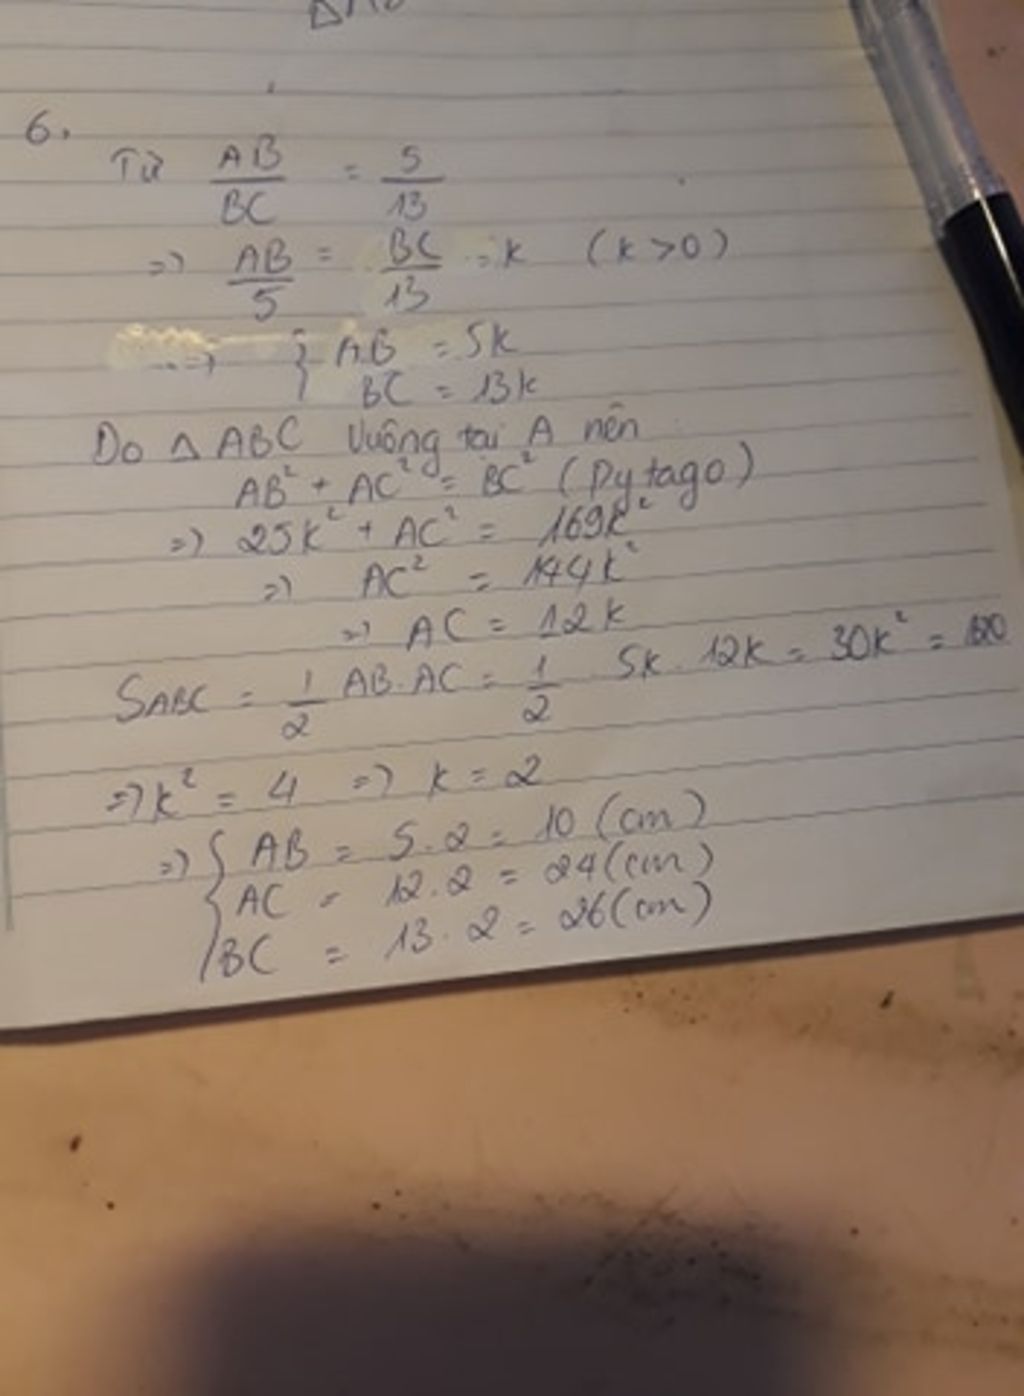 6.
Từ AB/BC = 5/13
=> AB/5 = BC/13 = k (k > 0)
=> { AB = 5k
BC = 13k
Do Δ ABC vuông tại A nên
AB² + AC² = BC² (Pytago)
=> 25k² + AC² = 169k²
=> AC² = 144k²
=> AC = 12k
SABC = 1/2 AB.AC = 1/2 . 5k . 12k = 30k² = 120
=> k² = 4 => k = 2
=> { AB = 5.2 = 10 (cm)
AC = 12.2 = 24 (cm)
BC = 13.2 = 26 (cm)